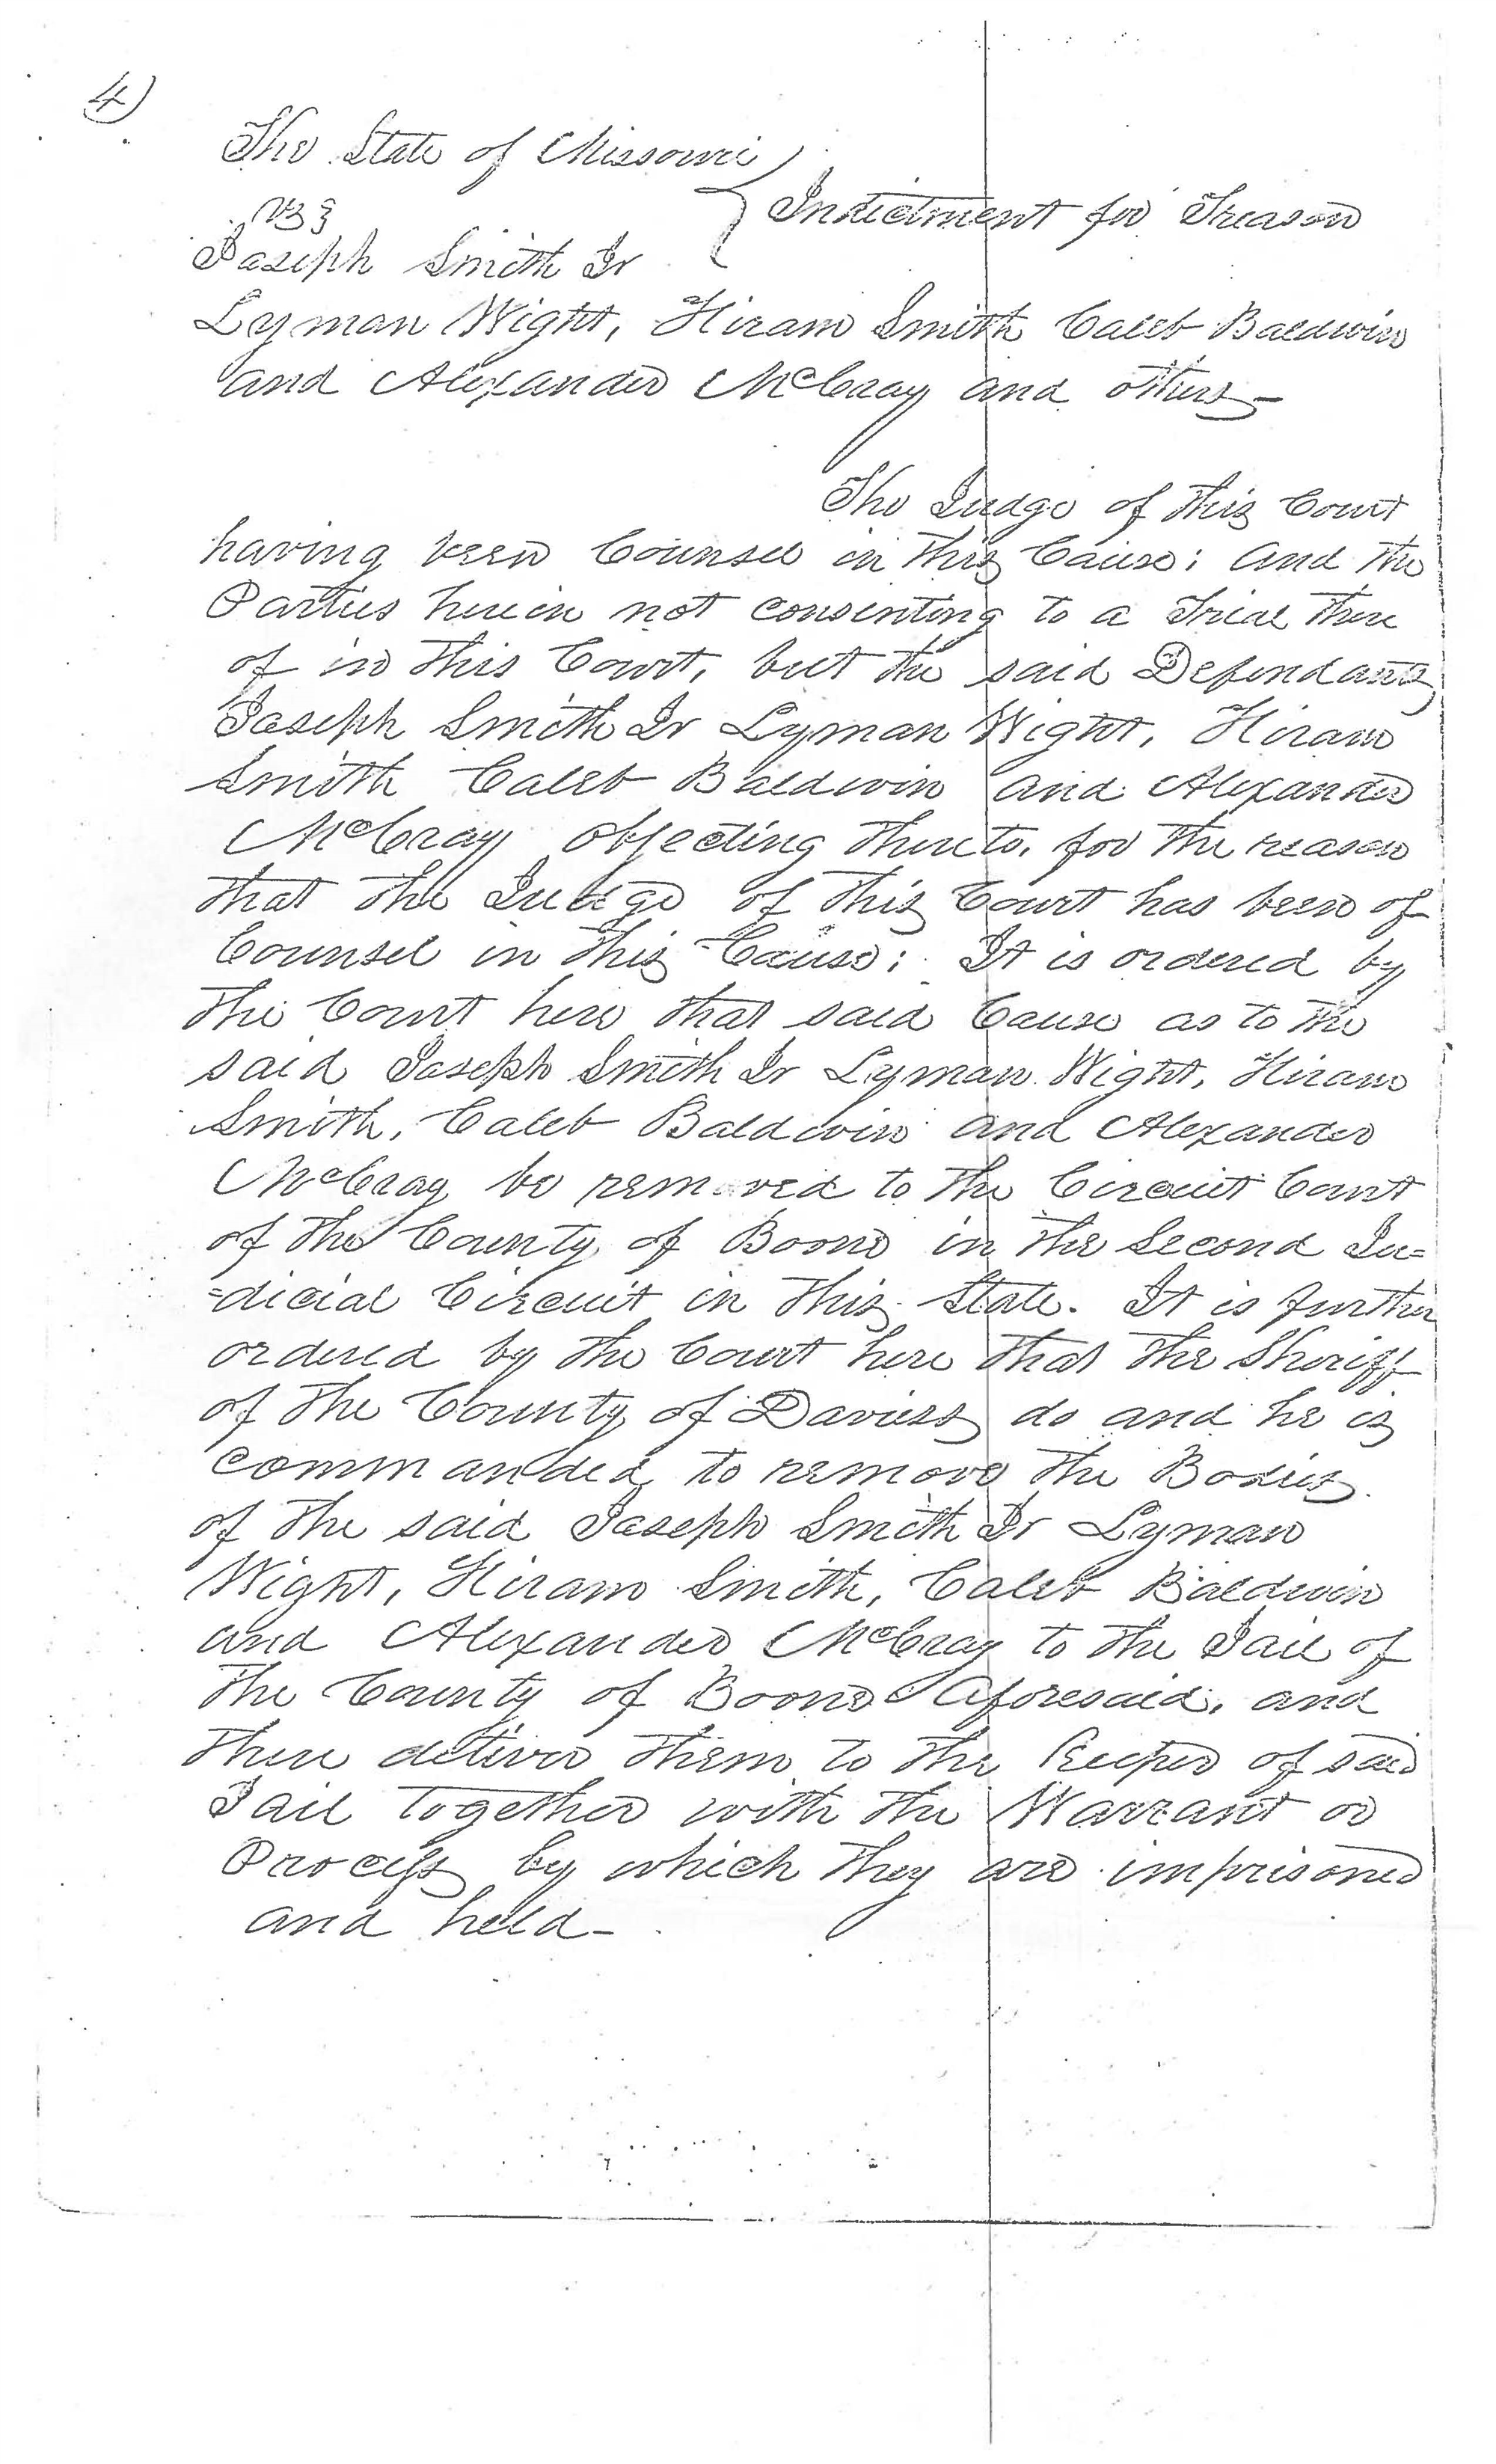 4)
The State of Missouri
vs } Indictment for Treason
Joseph Smith Jr
Lyman Wight, Hiram Smith Caleb Baldwin
and Alexander McCray and others—
The Judge of this Court
having been Counsel in this Cause; and the
Parties herein not consenting to a trial there
of in this Court, but the said Defendants
Joseph Smith Jr Lyman Wight, Hiram
Smith Caleb Baldwin and Alexander
McCray objecting thereto, for the reason
that the Judge of this Court has been of
Counsel in this Cause; It is ordered by
the Court here that said Cause as to the
said Joseph Smith Jr Lyman Wight, Hiram
Smith, Caleb Baldwin and Alexander
McCray be removed to the Circuit Court
of the County of Boone in the Second Ju=
=dicial Circuit in this State. It is further
ordered by the Court here that the Sheriff
of the County of Daviess do and he is
commanded to remove the Bodies
of the said Joseph Smith Jr Lyman
Wight, Hiram Smith, Caleb Baldwin
and Alexander McCray to the Jail of
the County of Boone aforesaid, and
there deliver them to the Keeper of said
Jail together with the Warrant or
Process by which they are imprisoned
and held—